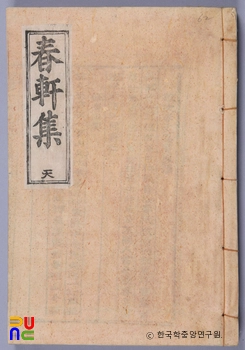 春軒集
天
ⓒ 한국학중앙연구원